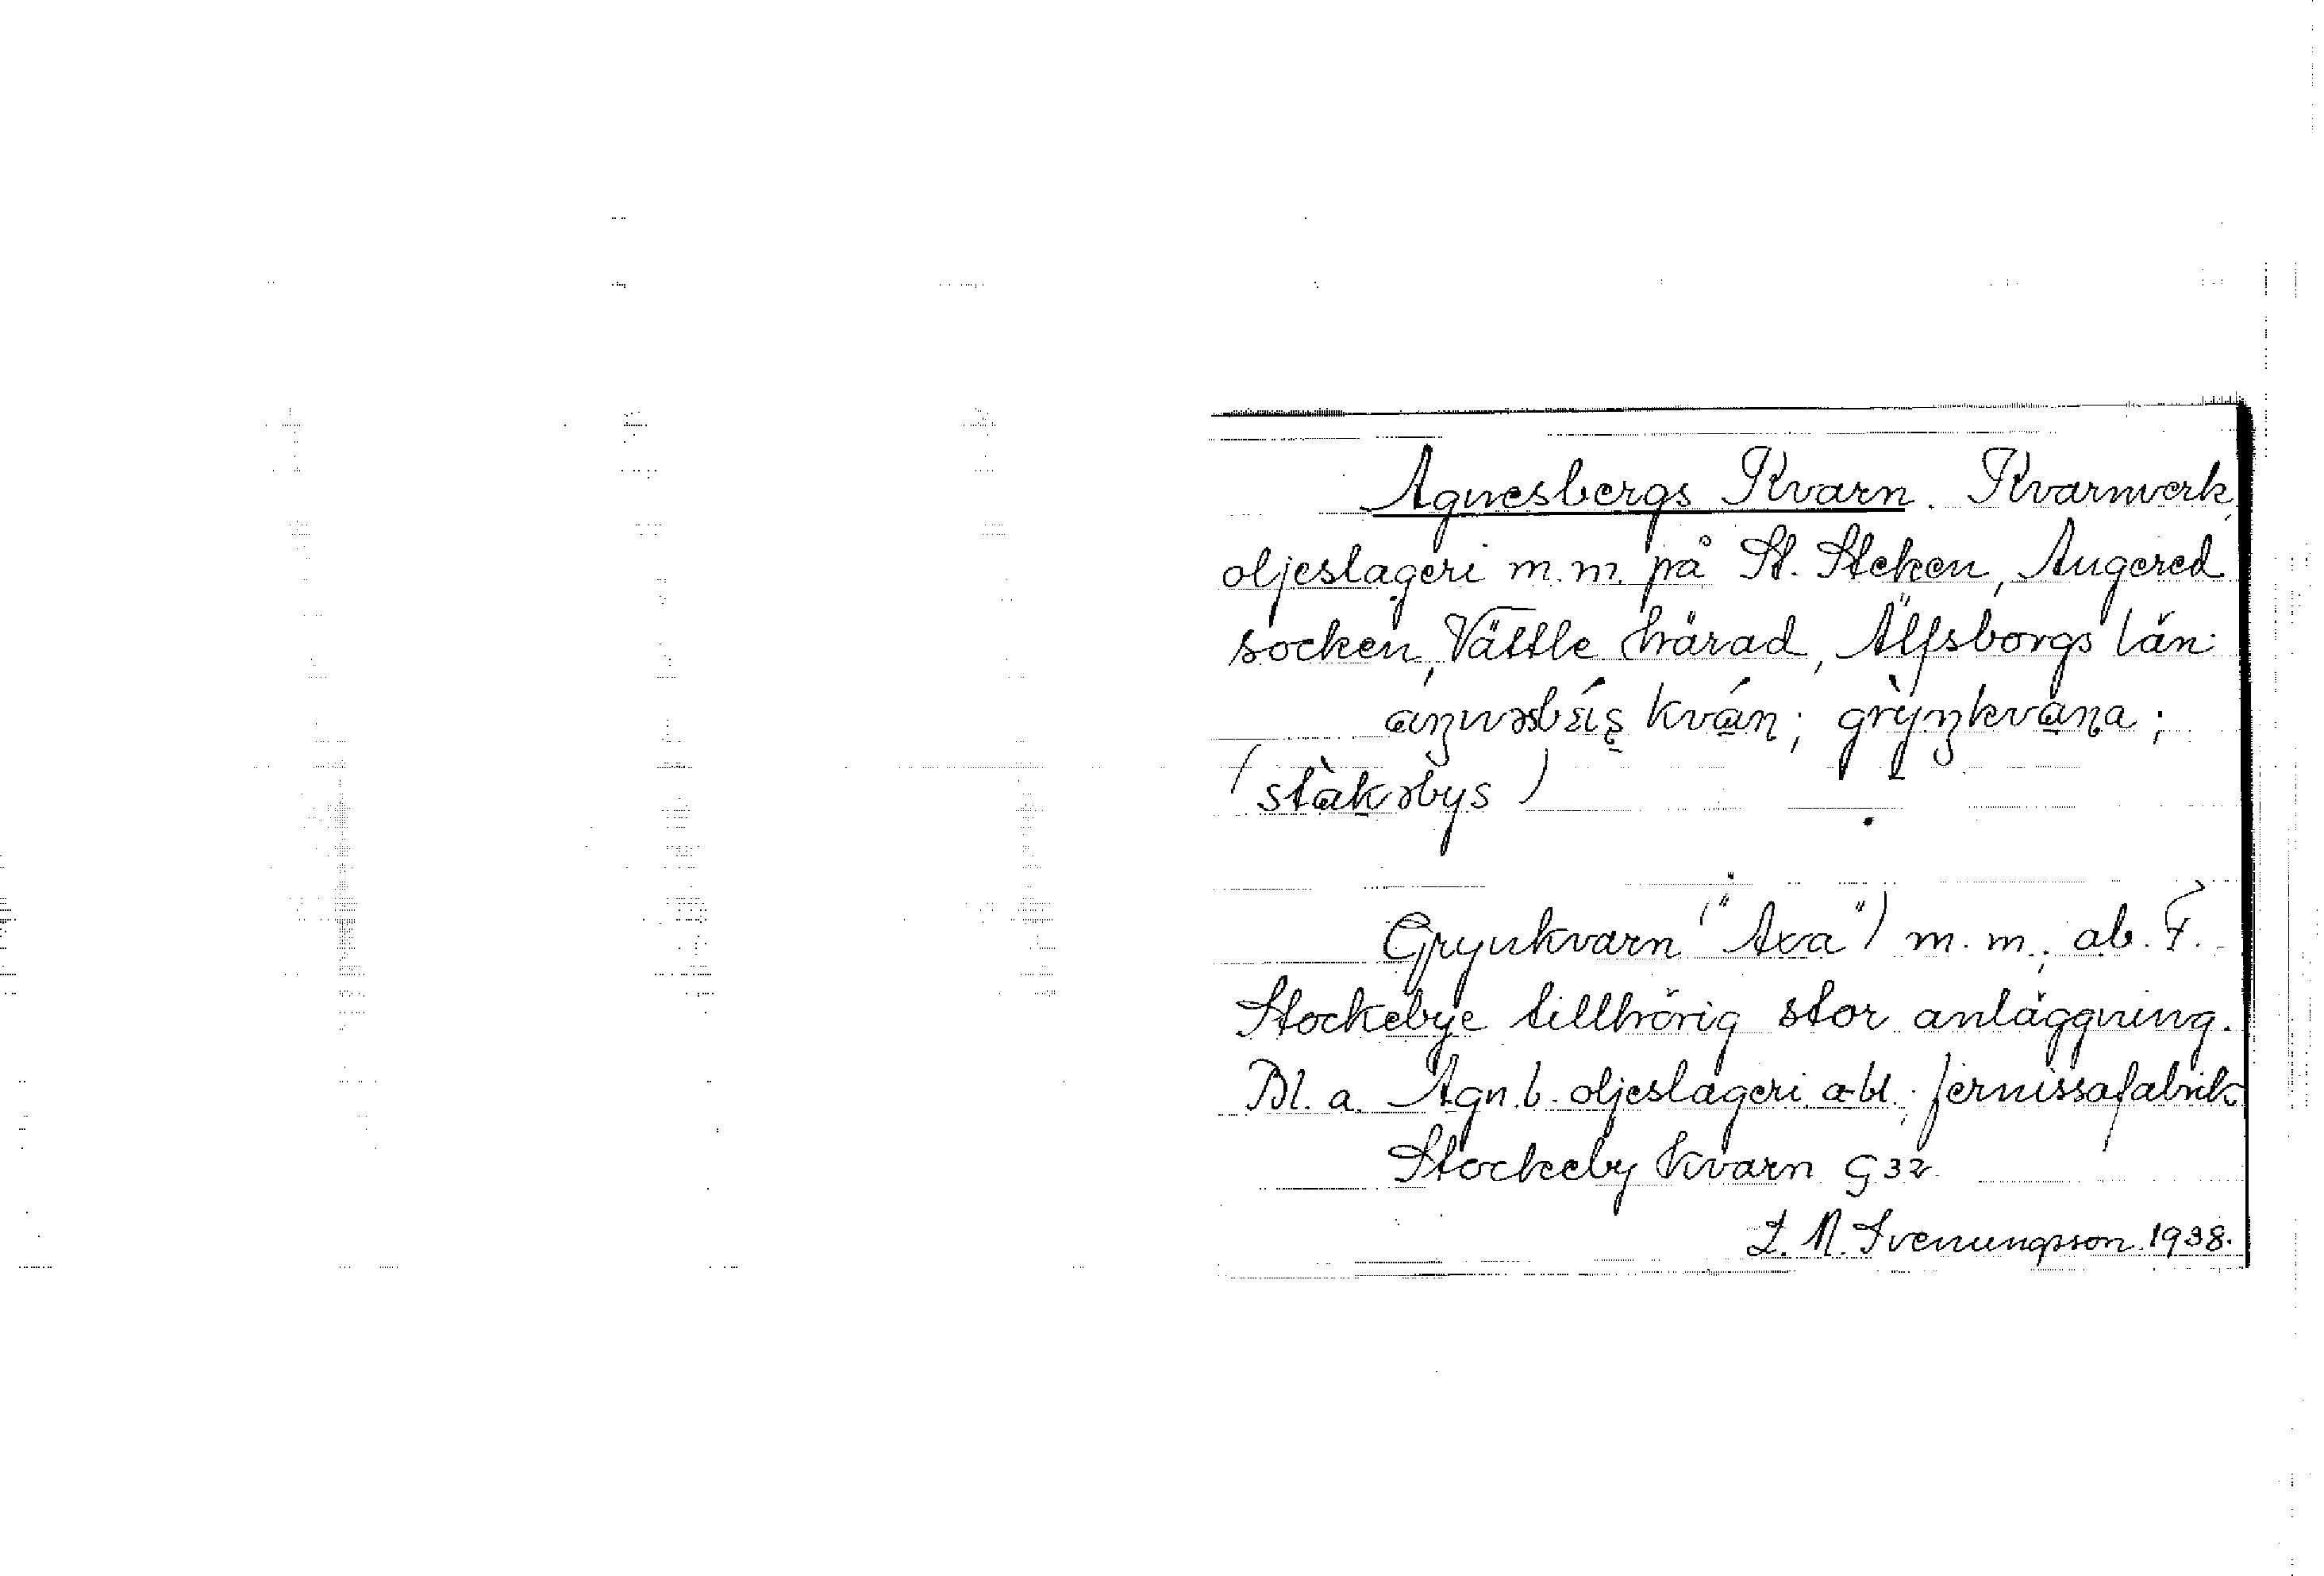 Agnesbergs Kvarn. Kvarnverk,
oljeslageri m.m. på St. Steken, Angered
socken, Vättle härad, Älfsborgs län.
kván; grỳnkvana;
(stàkəbys)
Grynkvarn ("Axa") m.m., ab. F.
Stockebye tillhörig stor anläggning.
Bl. a. Agn.b. oljeslageri abl.; fernissafabrik.
Stockeby Kvarn G32.
L. N. Svenungsson 1938.